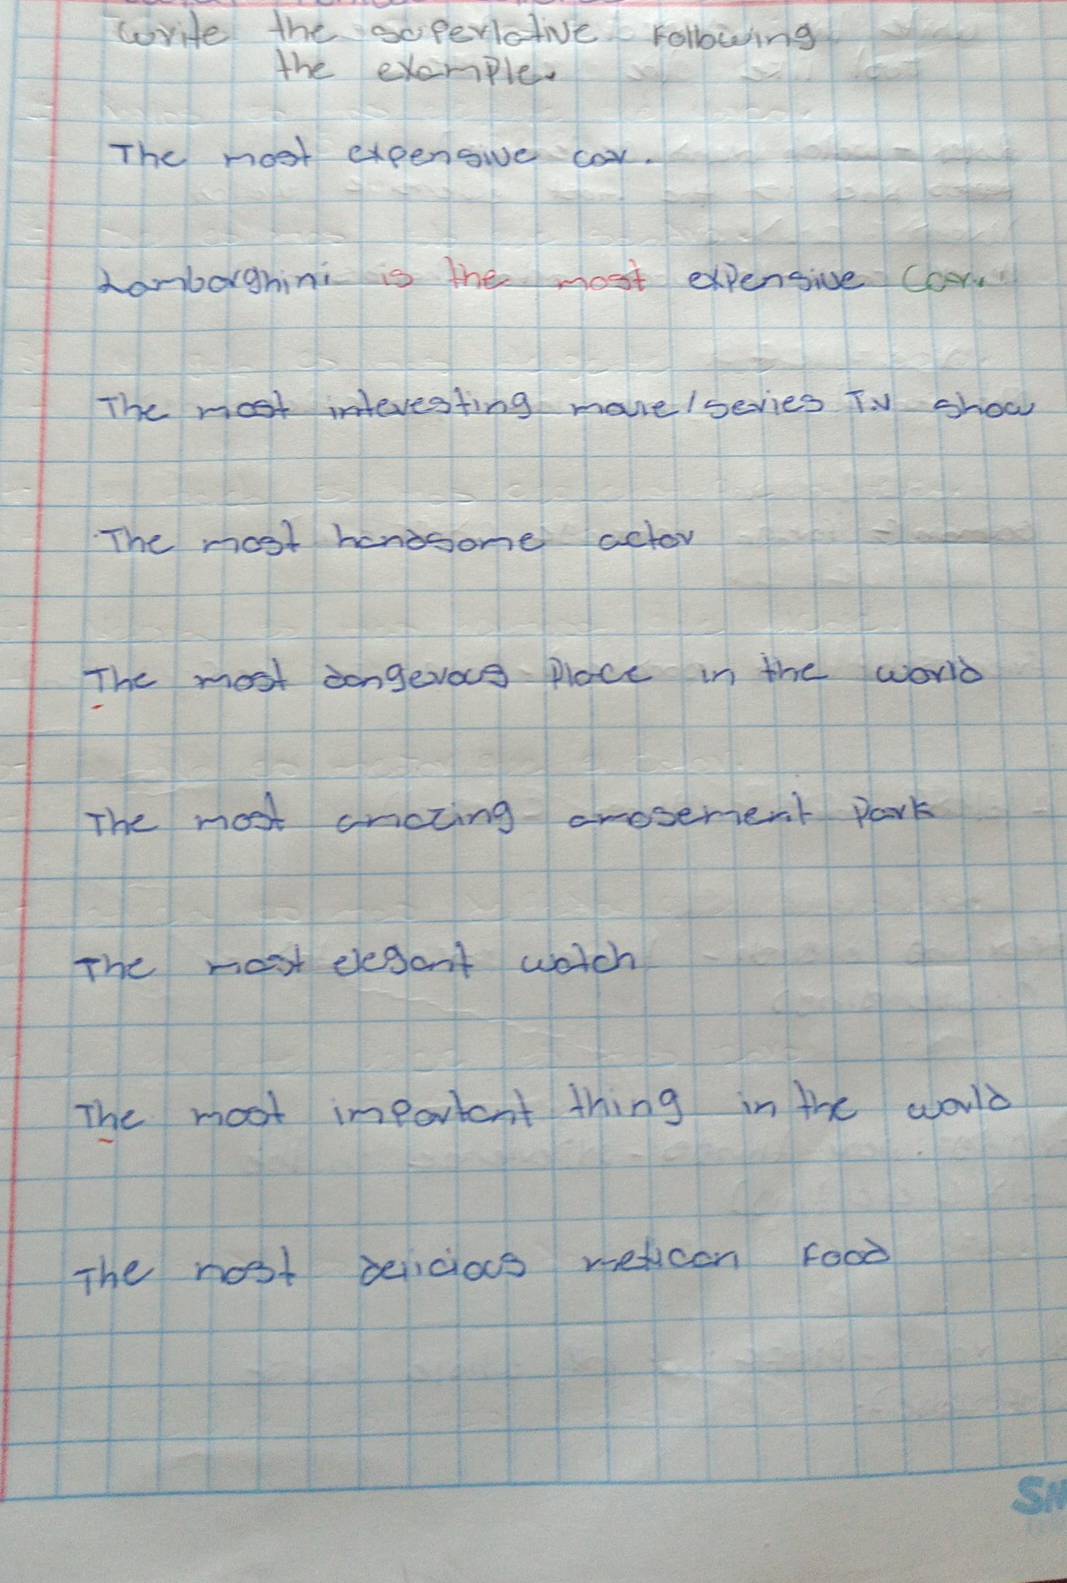 Write the superlative Following
the example.
The most expensive car.
Lamborghini is the most expensive car.
The most interesting movie/series T.V show
The most handsome actor
The most dangerous Place in the world
The most amazing amusement Park
The most elegant watch
The most important thing in the world
The most delicious mexican Food